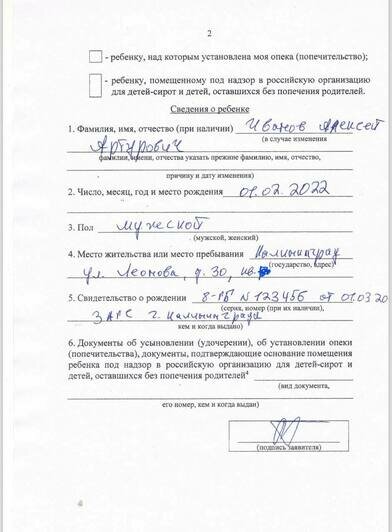 2
- ребенку, над которым установлена моя опека (попечительство);
- ребенку, помещенному под надзор в российскую организацию
для детей-сирот и детей, оставшихся без попечения родителей.
Сведения о ребенке
1. Фамилия, имя, отчество (при наличии) Иванов Алексей
(в случае изменения
Артурович
фамилии, имени, отчества указать прежние фамилию, имя, отчество,
причину и дату изменения)
2. Число, месяц, год и место рождения 01.02.2022
3. Пол мужской
(мужской, женский)
4. Место жительства или место пребывания Калининград
(государство, адрес)
ул. Леонова, д. 30, кв.
5. Свидетельство о рождении N 123456 от 01.03 20
(серия, номер (при их наличии),
ЗАГС г. Калининграда
кем и когда выдано)
6. Документы об усыновлении (удочерении), об установлении опеки
(попечительства), документы, подтверждающие основание помещения
ребенка под надзор в российскую организацию для детей-сирот и
детей, оставшихся без попечения родителей⁴
(вид документа,
его номер, кем и когда выдан)
(подпись заявителя)